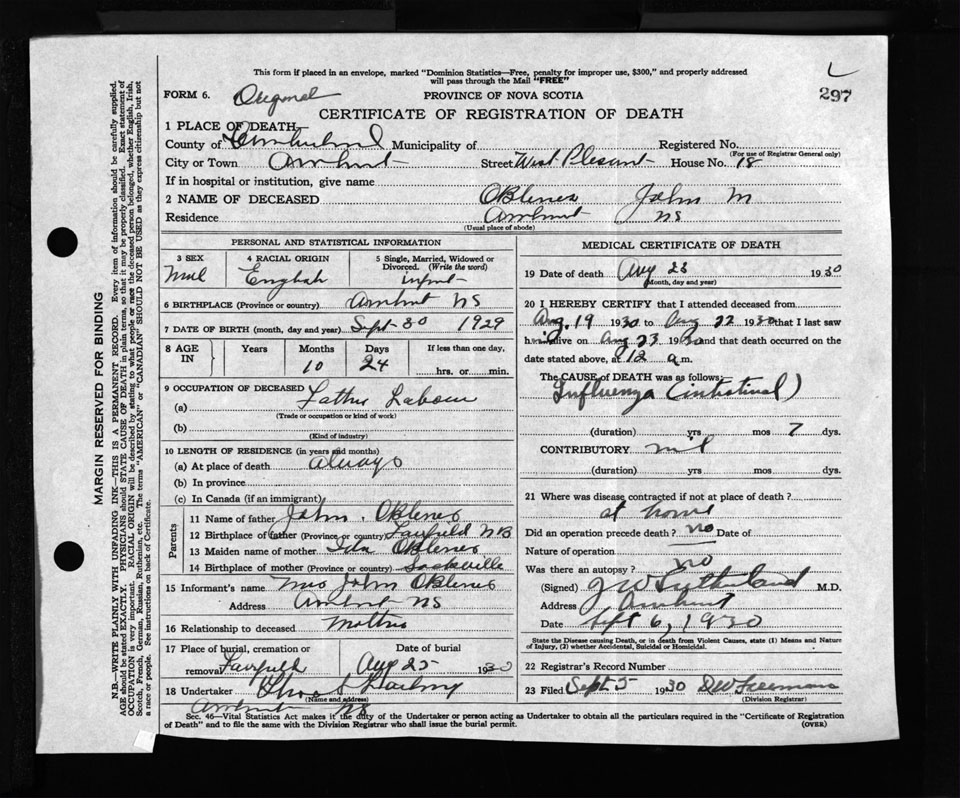 This form if placed in an envelope, marked "Dominion Statistics—Free, penalty for improper use, $300," and properly addressed
will pass through the Mail "FREE"
FORM 6. Original PROVINCE OF NOVA SCOTIA 297
CERTIFICATE OF REGISTRATION OF DEATH
1 PLACE OF DEATH—
County of Cumberland Municipality of Registered No.
(For use of Registrar General only)
City or Town Amherst Street West Plesant House No. 18
If in hospital or institution, give name
2 NAME OF DECEASED OBlenes John M
Residence Amherst NS
(Usual place of abode)
PERSONAL AND STATISTICAL INFORMATION
3 SEX 4 RACIAL ORIGIN 5 Single, Married, Widowed or
Divorced. (Write the word)
Mal English infant
6 BIRTHPLACE (Province or country) Amherst NS
7 DATE OF BIRTH (month, day and year) Sept 30 1929
8 AGE IN Years Months Days If less than one day,
10 24 hrs. or min.
9 OCCUPATION OF DECEASED
(a) Father Labour
(Trade or occupation or kind of work)
(b)
(Kind of industry)
10 LENGTH OF RESIDENCE (in years and months)
(a) At place of death always
(b) In province
(c) In Canada (if an immigrant)
Parents
11 Name of father John OBlenes
12 Birthplace of father (Province or country) Fairfield NB
13 Maiden name of mother Ida OBlenes
14 Birthplace of mother (Province or country) Sackville
15 Informant's name Mrs John OBlenes
Address Amherst NS
16 Relationship to deceased Mother
17 Place of burial, cremation or Date of burial
removal Fairfield Aug 25 1930
18 Undertaker
(Name and address)
Amherst NS
MEDICAL CERTIFICATE OF DEATH
19 Date of death Aug 23 1930
(Month, day and year)
20 I HEREBY CERTIFY that I attended deceased from
Aug. 19 1930 to Aug 22 1930 that I last saw
h alive on Aug 23 1930 and that death occurred on the
date stated above, at 12 a m.
The CAUSE of DEATH was as follows:
Influenza (intestinal)
(duration) yrs mos 7 dys.
CONTRIBUTORY nil
(duration) yrs. mos. dys.
21 Where was disease contracted if not at place of death?
at home
Did an operation precede death? no Date of
Nature of operation
Was there an autopsy? no
(Signed) J W Sutherland M.D.
Address Amherst
Date Sept 6, 1930
State the Disease causing Death, or in death from Violent Causes, state (1) Means and Nature
of Injury, (2) whether Accidental, Suicidal or Homicidal.
22 Registrar's Record Number
23 Filed Sept 5 1930 DW Freeman
(Division Registrar)
Sec. 46—Vital Statistics Act makes it the duty of the Undertaker or person acting as Undertaker to obtain all the particulars required in the "Certificate of Registration
of Death" and to file the same with the Division Registrar who shall issue the burial permit. (OVER)
MARGIN RESERVED FOR BINDING
N.B.—WRITE PLAINLY WITH UNFADING INK—THIS IS A PERMANENT RECORD. Every item of information should be carefully supplied.
AGE should be stated EXACTLY. PHYSICIANS should STATE CAUSE OF DEATH in plain terms, so that it may be properly classified. Exact statement of
OCCUPATION is very important. RACIAL ORIGIN will be described by stating to what people or race the deceased person belonged, whether English, Irish,
Scotch, French, German, Russian, Ruthenian, etc. The terms "AMERICAN" or "CANADIAN" SHOULD NOT BE USED as they express citizenship but not
a race or people. See instructions on back of Certificate.